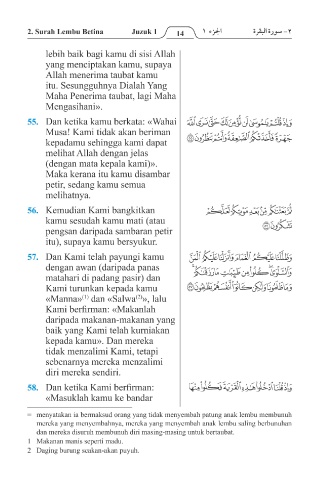 2. Surah Lembu Betina Juzuk 1 14 الجزء ١ ٢ - سورة البقرة
lebih baik bagi kamu di sisi Allah
yang menciptakan kamu, supaya
Allah menerima taubat kamu
itu. Sesungguhnya Dialah Yang
Maha Penerima taubat, lagi Maha
Mengasihani».
55. Dan ketika kamu berkata: «Wahai
Musa! Kami tidak akan beriman
kepadamu sehingga kami dapat
melihat Allah dengan jelas
(dengan mata kepala kami)».
Maka kerana itu kamu disambar
petir, sedang kamu semua
melihatnya.
وَإِذْ قُلْتُمْ يَٰمُوسَىٰ لَن نُّؤْمِنَ لَكَ حَتَّىٰ نَرَى ٱللَّهَ
جَهْرَةً فَأَخَذَتْكُمُ ٱلصَّٰعِقَةُ وَأَنتُمْ تَنظُرُونَ ۝٥٥
56. Kemudian Kami bangkitkan
kamu sesudah kamu mati (atau
pengsan daripada sambaran petir
itu), supaya kamu bersyukur.
ثُمَّ بَعَثْنَٰكُم مِّنۢ بَعْدِ مَوْتِكُمْ لَعَلَّكُمْ
تَشْكُرُونَ ۝٥٦
57. Dan Kami telah payungi kamu
dengan awan (daripada panas
matahari di padang pasir) dan
Kami turunkan kepada kamu
«Manna»(1) dan «Salwa(2)», lalu
Kami berfirman: «Makanlah
daripada makanan-makanan yang
baik yang Kami telah kurniakan
kepada kamu». Dan mereka
tidak menzalimi Kami, tetapi
sebenarnya mereka menzalimi
diri mereka sendiri.
وَظَلَّلْنَا عَلَيْكُمُ ٱلْغَمَامَ وَأَنزَلْنَا عَلَيْكُمُ ٱلْمَنَّ
وَٱلسَّلْوَىٰ كُلُوا۟ مِن طَيِّبَٰتِ مَا رَزَقْنَٰكُمْ
وَمَا ظَلَمُونَا وَلَٰكِن كَانُوٓا۟ أَنفُسَهُمْ يَظْلِمُونَ ۝٥٧
58. Dan ketika Kami berfirman:
«Masuklah kamu ke bandar
وَإِذْ قُلْنَا ٱدْخُلُوا۟ هَٰذِهِ ٱلْقَرْيَةَ فَكُلُوا۟ مِنْهَا
= menyatakan ia bermaksud orang yang tidak menyembah patung anak lembu membunuh
mereka yang menyembahnya, mereka yang menyembah anak lembu saling berbunuhan
dan mereka disuruh membunuh diri masing-masing untuk bertaubat.
1 Makanan manis seperti madu.
2 Daging burung seakan-akan puyuh.